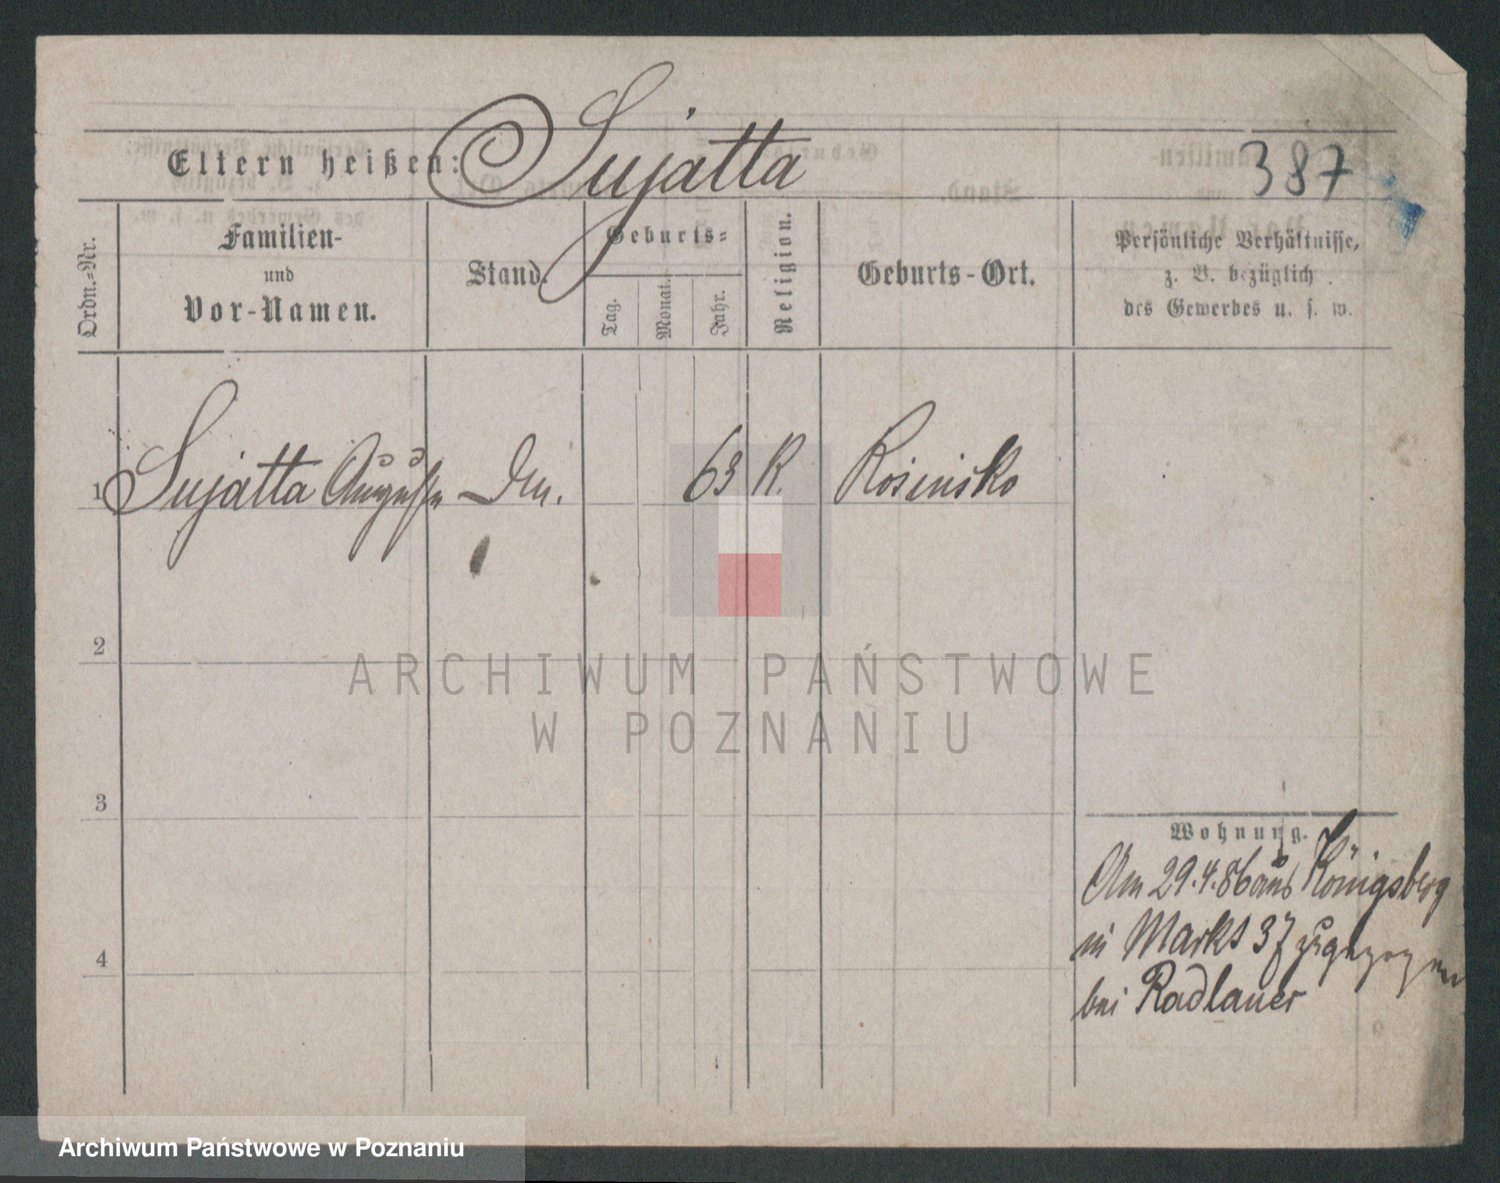 Eltern heißen: Sujatta
387
Ordn.-Nr.
Familien-
und
Vor-Namen.
Stand.
Geburts-
Tag.
Monat.
Jahr.
Religion.
Geburts-Ort.
Persönliche Verhältnisse,
z. B. bezüglich
des Gewerbes u. s. w.
1 Sujatta 63 K. Rosinsko
2
3
4
Wohnung.
Am 29.4.86 aus Königsberg
in Markt 37 zugezogen
bei Radlauer
ARCHIWUM PAŃSTWOWE
W POZNANIU
Archiwum Państwowe w Poznaniu